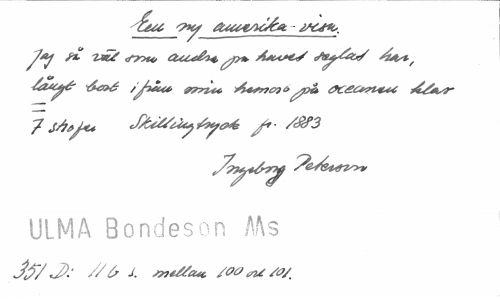 Een ny amerika-visa.
Jag så väl som andra på havet seglat har,
långt bort ifrån min hemort på oceanen klar
7 strofer Skillingtryck fr. 1883
Ingeborg Petersson
ULMA Bondeson Ms
351 D: 116 s. mellan 100 och 101.